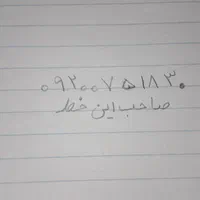 ۰۹۲۰۰۷۵۱۸۳۰
صاحب این خط